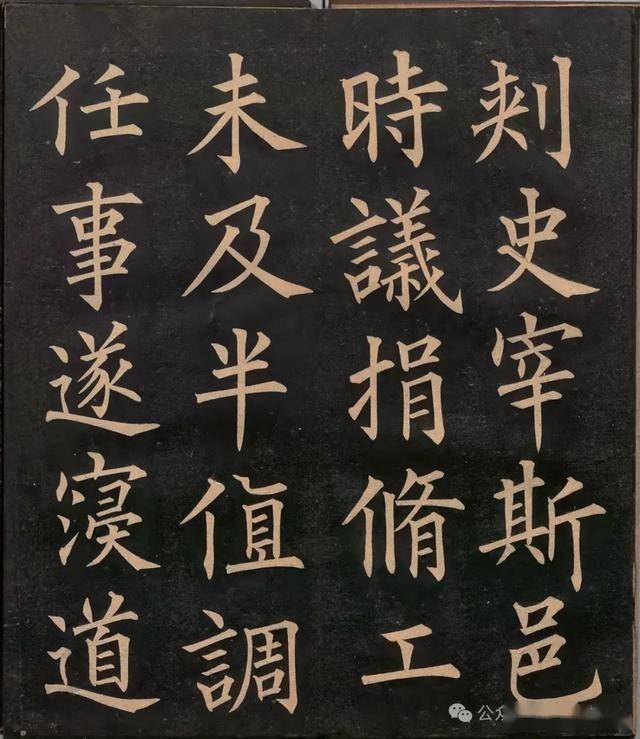 刾史宰斯邑
時議捐脩工
未及半值調
任事遂寖道
公众